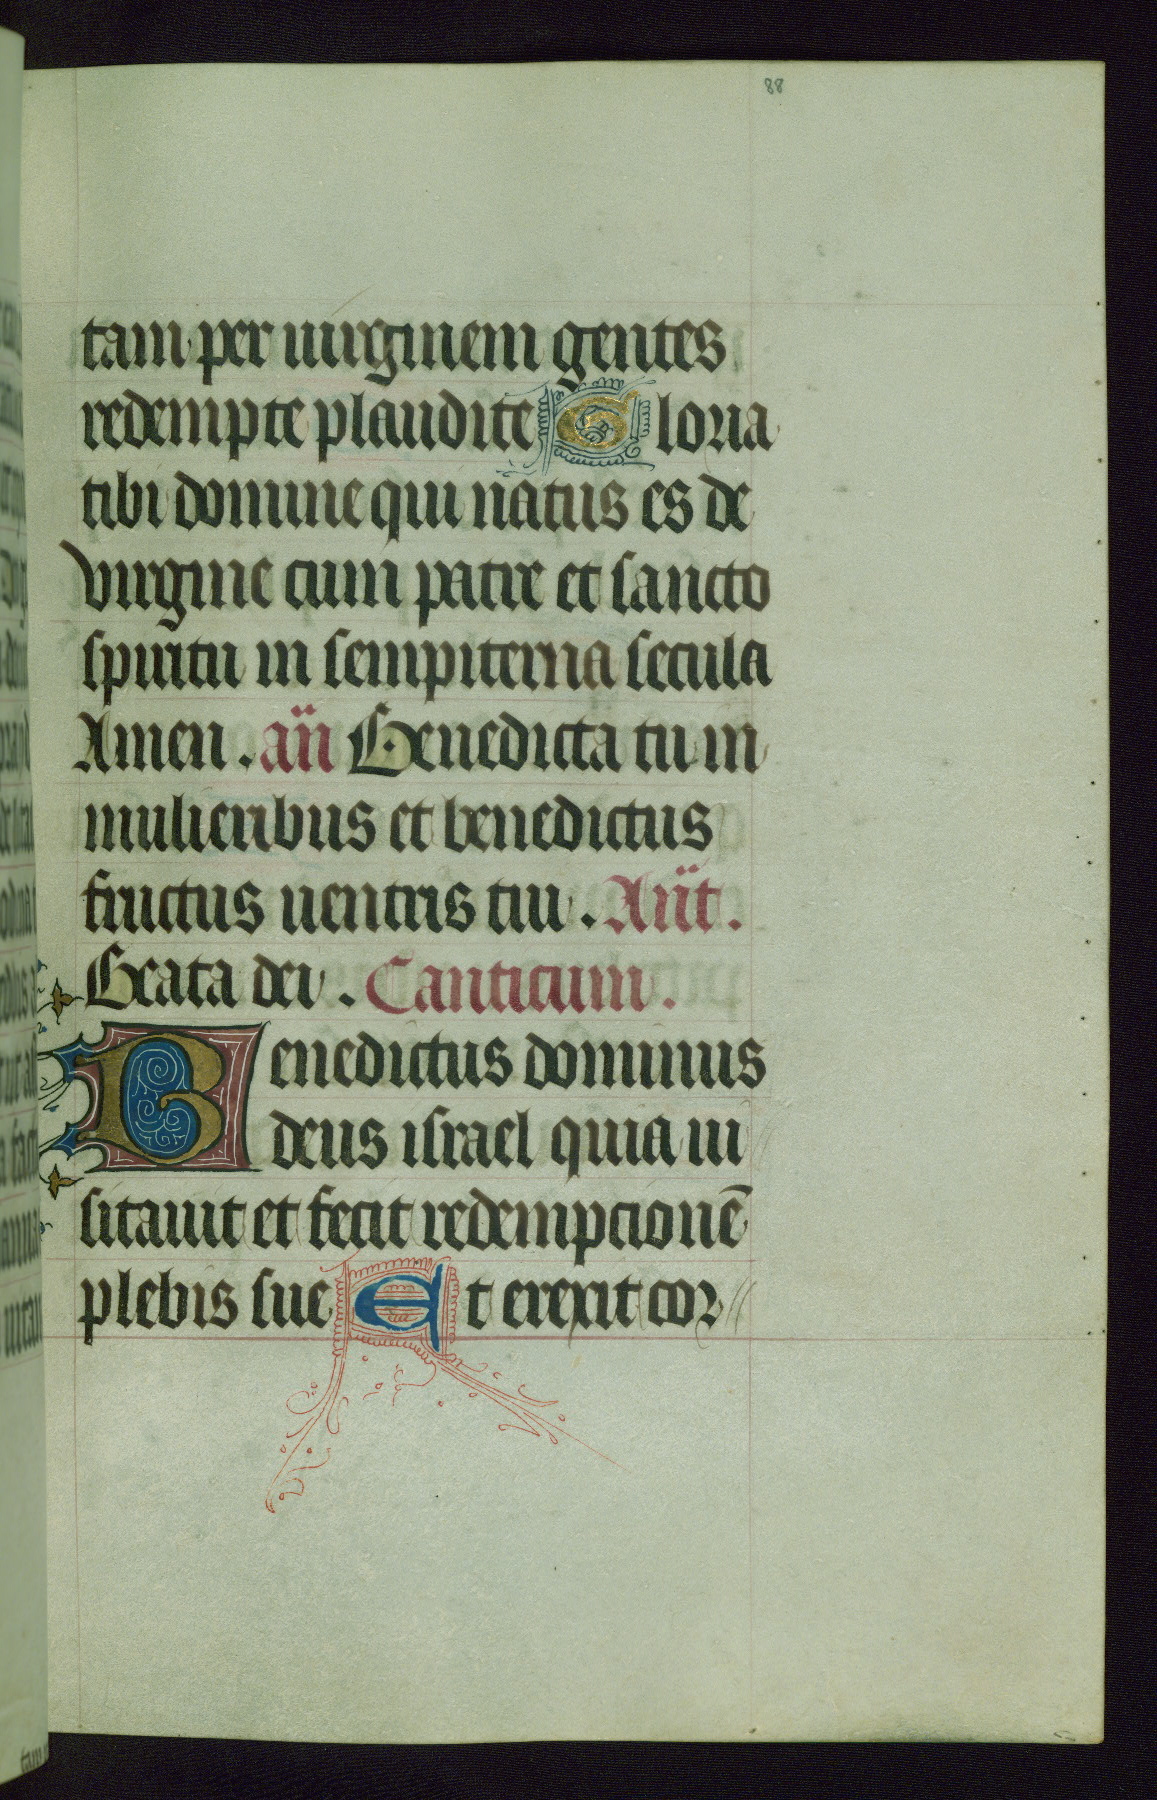 88
tam per uirginem gentes
redempte plaudite Gloria
tibi domine qui natus es de
virgine cum patre et sancto
spiritu in sempiterna secula
Amen. añ Benedicta tu in
mulieribus et benedictus
fructus uentris tui. Añt.
Beata dei. Canticum.
Benedictus dominus
deus israel quia ui
sitauit et fecit redempcionē
plebis sue Et erexit cor